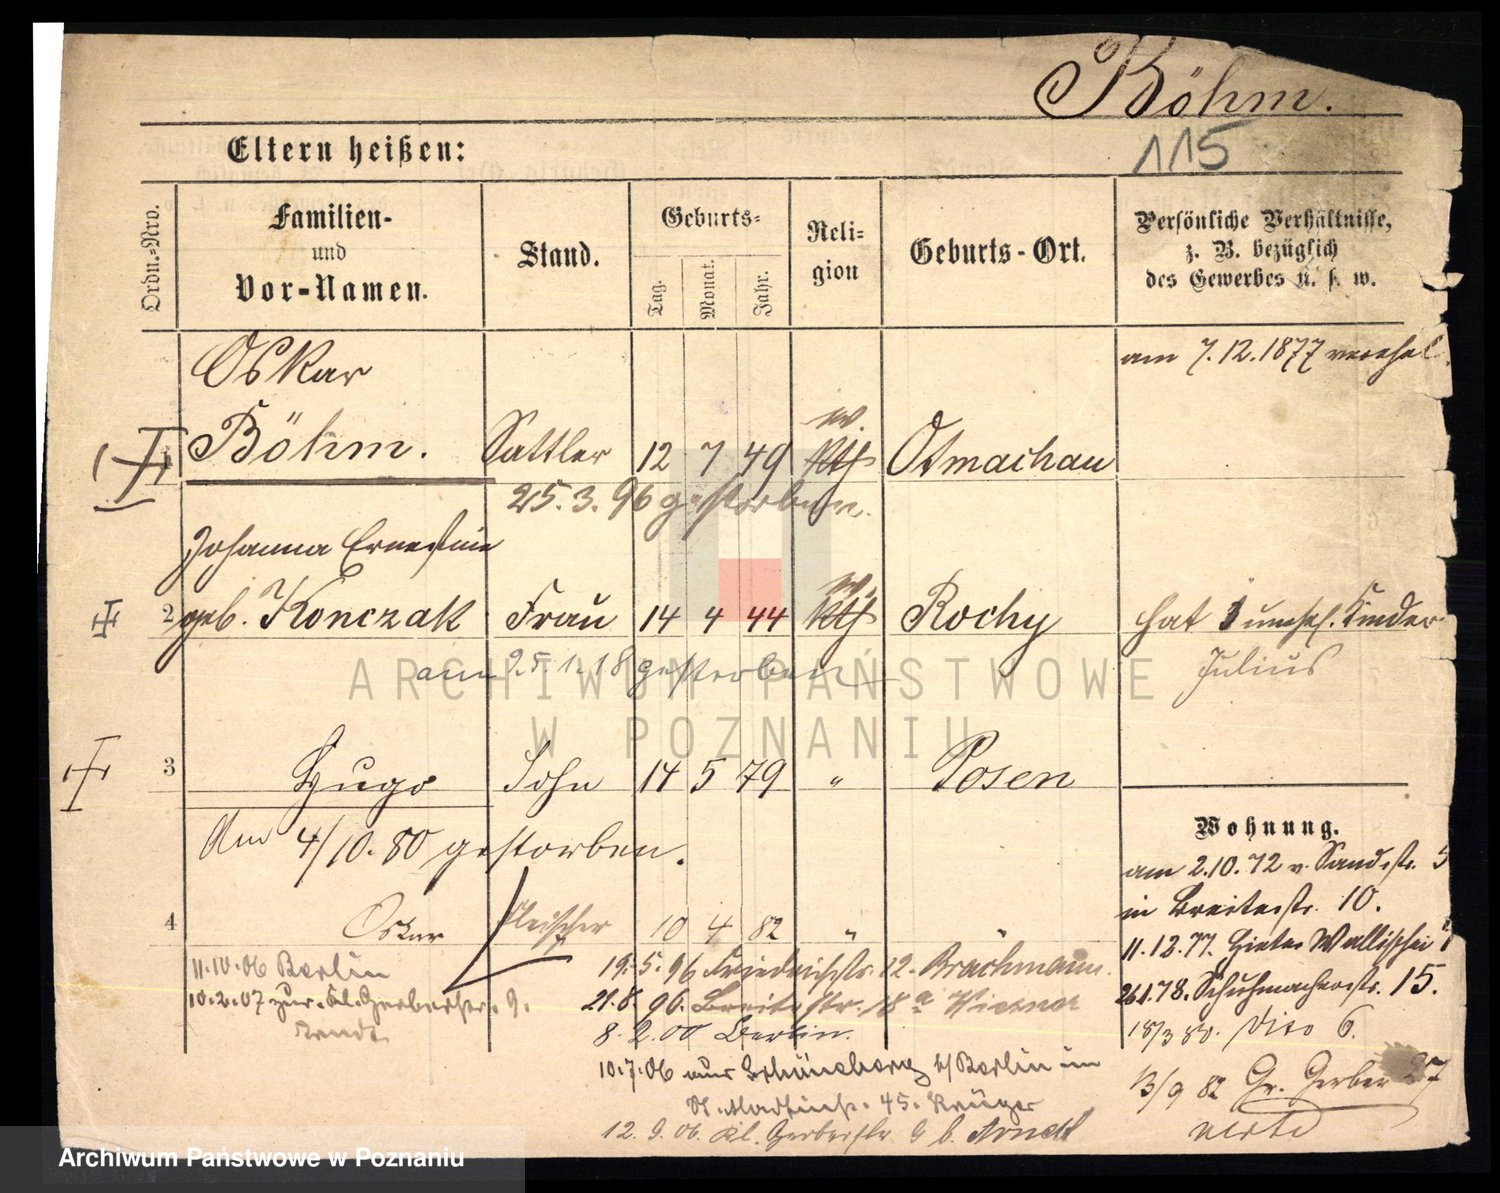 Böhm.
115
Eltern heißen:
Ordn.-Nro.
Familien-
und
Vor-Namen.
Stand.
Geburts-
Tag.
Monat.
Jahr.
Reli-
gion
Geburts-Ort.
Persönliche Verhältnisse,
z. B. bezüglich
des Gewerbes u. s. w.
Oskar
am 7.12.1877 verehel.
1 Böhm. Sattler 12 7 49 kth w. Otmachau
25.3.96 gestorben.
Johanna Ernestine
2 geb. Konczak Frau 14 4 44 kth w. Rochy hat 1 unehel. Kinder
am 25.1.18 gestorben
Julius
3 Hugo Sohn 14 5 79 " Posen
Am 4/10.80 gestorben.
Wohnung.
am 2.10.72 v. Sandstr. 5
in Breitestr. 10.
4 Oskar Fleischer 10 4 82 "
11.12.77. Hinter Wallischei
11.10.06 Berlin
19.5.96 Friedrichstr. 12. Brachmann.
26.1.78. Schuhmacherstr. 15.
10.2.07 zur. Kl. Gerberstr. 9.
Arndt
21.8.96. Breitestr. 18a
8.2.00 Berlin.
18/3 80. Dito 6.
10.7.06 aus Schöneberg b/Berlin in
45. Krüger
13/9 82 Gr. Gerber 27
12.9.06. Kl. Gerberstr. 9 b. Arndt
ARCHIWUM PAŃSTWOWE
W POZNANIU
Archiwum Państwowe w Poznaniu